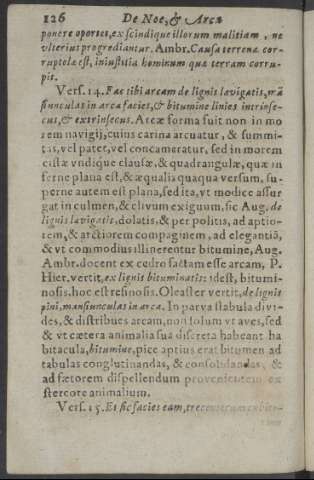 126 De Noe, & Arca
ponere oportet, ex scindique illorum malitiam, ne
vlterius progrediantur. Ambr. Causa terrenæ cor-
ruptolæ est, iniustitia hominum quæ terram corru-
pit.
Vers. 14. Fac tibi arcam de lignis lævigatis, mã
siunculas in arca facies, & bitumine linies intrinse-
cus, & extrinsecus. Arcæ forma fuit non in mo
rem navigij, cuius carina arcuatur, & summi-
tas, vel patet, vel concameratur, sed in morem
cistæ vndique clausæ, & quadrangulæ, quæ in
ferne plana est, & æqualis quaqua versum, su-
perne autem est plana, sed ita, vt modice assur
gat in culmen, & clivum exiguum, sic Aug. de
lignis lævigatis, dolatis, & per politis, ad aptio-
rem, & arctiorem compaginem, ad elegantiã,
& vt commodius illinerentur bitumine, Aug.
Ambr. docent ex cedro factam esse arcam, P.
Hier. vertit, ex lignis bituminatis: idest, bitumi-
nosis. hoc est resinosis. Oleaster vertit, de lignis
pini, mansiunculas in arca. In parva stabula divi-
des, & distribues arcam, non solum vt aves, sed
& vt cætera animalia sua discreta habeant ha
bitacula, bitumine, pice aptius erat bitumen ad
tabulas conglutinandas, & consolidandas, &
ad fætorem dispellendum provenientem ex
stercore animalium.
Vers. 15. Et sic facies eam, trecentorum cubito-